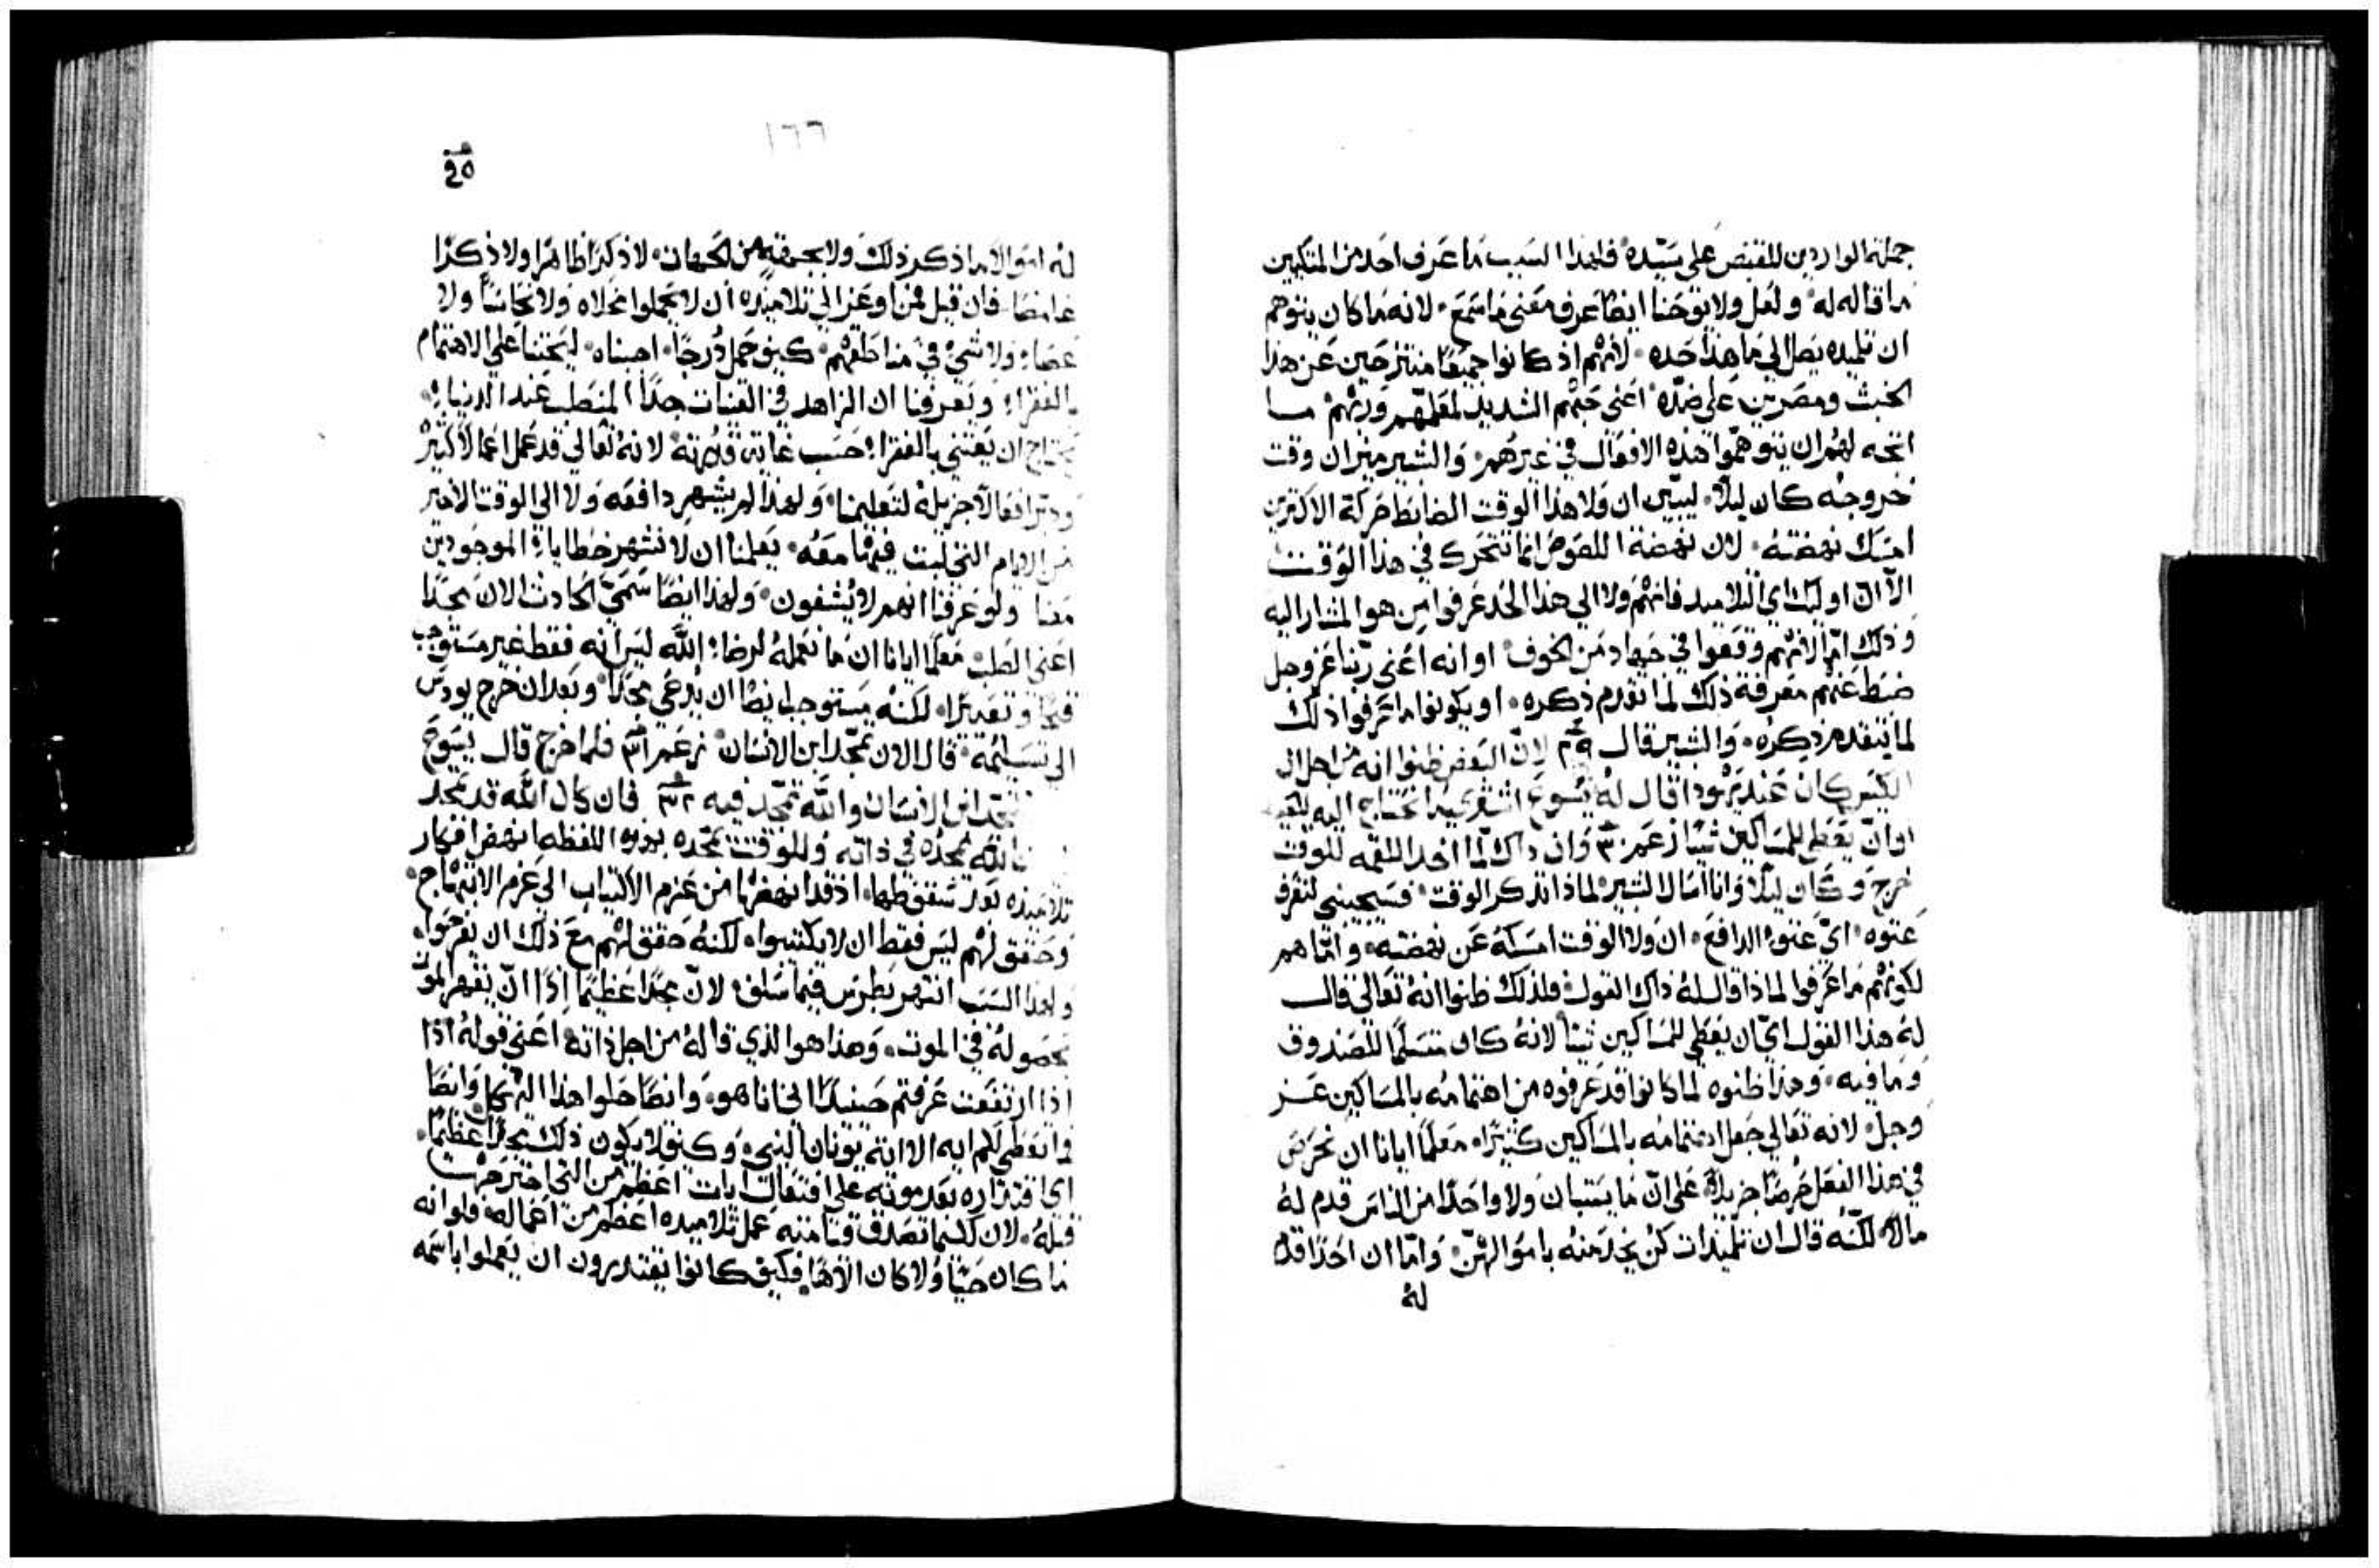 جملة الواردين للقبض على سيّده فلهذا السبب ما عرف احد من المتكيين
ما قاله له ولعل ولا يوحنا ايضًا عرف معنى ما سمع لانه ما كان يتوهم
ان تلميده يصل الي ما هذا حده لانهم اذ كانوا جميعًا منتزحين عن هذا
الخبث ومصرين على ضدّه اعني حبهم الشديد لمعلمهم وربهم ما
اتجه لهم ان يتوهموا هذه الافعال في غيرهم والبشير ميز ان وقت
خروجه كان ليلًا ليبيّن ان ولا هذا الوقت الضابط حركة الاكثرين
امسك نهضته لان نهضة اللصوص انما تتحرك في هذا الوقت
الا ان اوليك اي التلاميد فانهم ولا الي هذا الحد عرفوا من هو المشار اليه
وذلك امّا لانهم وقعوا في جهاد من الخوف او انه اعني ربّنا عز وجل
ضبط عنهم معرفة ذلك لما تقدم ذكره او يكونوا ما عرفوا ذلك
لما يتقدم ذكره والبشير قال لان البعض ظنوا انه من اجل ان
الكيس كان عند يهودا قال له يسوع اشتري ما نحتاج اليه للعيد
او ان يعطي للمساكين شيًا وان داك لمّا اخد اللقمه للوقت
خرج وكان ليلًا وانا اسال البشير لماذا تدكر الوقت فسيجيبني لتعرف
عتوه اي عتوه الدافع ان ولا الوقت امسكه عن نهضته وامّا هم
لكونهم ما عرفوا لماذا قال له ذاك القول فلذلك ظنوا انه تعالي قال
له هذا القول اي ان يعطي للمساكين شيًا لانه كان متسلمًا للصندوق
وما فيه وهذا ظنوه لما كانوا قد عرفوه من اهتمامه بالمساكين عز
وجل لانه تعالي جعل اهتمامه بالمساكين كثيرًا معلمًا ايانا ان نحرص
في هذا الفعل حرصًا جزيلًا على انّ ما يستبان ولا واحدًا من الناس قدم له
مالًا لكنّه قال ان تلميذات كن يخدمنه باموالهنّ وامّا ان احدًا قدم
له
١٦٦
له اموالًا ما ذكر ذلك ولا بجهة من الجهات لا ذكرًا ظاهرًا ولا ذكرًا
غامضًا فان قيل فمن اوعز الي تلاميذه ان لا يحملوا مخلاه ولا نحاسًا ولا
عصًا ولا شي في مناطقهم كيف حمل دُرجًا اجبناه ليحثنا علي الاهتمام
بالفقراء ويعرفنا ان الزاهد في القنيات جدًا المنصلب عند الدنيا
يحتاج ان يعتني بالفقراء حسب غاية قوته لانه تعالي قد عمل اعمالًا كثيرة
ودبر افعالًا جزيلة لتعليمنا ولهذا لم يشهر دافعه ولا الي الوقت الاخير
من الايام التي لبث فيها معه يعلمنا ان لا نشهر خطايا الموجودين
معنا ولو عرفنا انهم لا يُشفون ولهذا ايضًا سمّي الحادث الان مجدًا
اعني الصلب معلمًا ايانا ان ما نعمله لرضا الله ليس انه فقط غير مستوجب
قبحًا وتعييرًا لكنه يستوجب ايضًا ان يُدعى مجدًا وبعد ان خرج يودس
الي تسليمه قال الان تمجّد ابن الانسان فلما خرج قال يسوع
تمجّد ابن الانسان والله تمجّد فيه فان كان الله قد تمجد
فالله يمجده في ذاته وللوقت يمجّده بهذه اللفظه انهض افكار
تلاميذه بعد سقوطها اذ قد انهضها من عزم الاكتياب الي عزم الابتهاج
وحقق لهم ليس فقط ان لا يكتيبوا لكنه حقق لهم مع ذلك ان يفرحوا
ولهذا السبب انتهر بطرس فيما سلف لان مجدًا عظيمًا اذًا ان يقهر الموت
بحصوله في الموت وهذا هو الذي قاله من اجل ذاته اعني قوله اذا
اذا ارتفعت عرفتم حينيذ اني انا هو وايضًا حلوا هذا الهيكل وايضًا
ما تعطي لكم ايه الا اية يونان النبي وكيف لا يكون ذلك مجدًا عظيمًا
اي اقتداره بعد موته علي افتعال ايات اعظم من التي اخترحت
قبله لان كلما تصدق قيامته عمل تلاميده اعظم من اعماله فلو انه
ما كان حيًا ولا كان الاهًا فكيف كانوا يقتدرون ان يعملوا باسمه